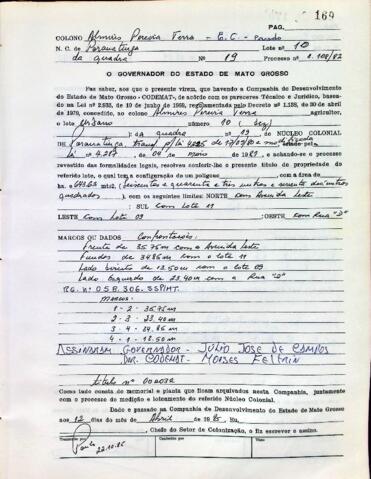 164
PAG.
COLONO Almiro Pereira Terra - E.C. - Pardo
N. C. de Paranatinga Lote nº 10
da quadra Nº 19 Processo nº 2.108/82
O GOVERNADOR DO ESTADO DE MATO GROSSO
Faz saber, aos que o presente virem, que havendo a Companhia de Desenvolvimento
do Estado de Mato Grosso - CODEMAT, de acordo com os pareceres Técnico e Jurídico, basea-
do na Lei nº 2.933, de 19 de junho de 1969, regulamentada pelo Decreto nº 1.138, de 30 de abril
de 1970, concedido ao colono Almiro Pereira Terra, agricultor,
o lote Urbano número 10 (dez)
); da quadra nº 19 NÚCLEO COLONIAL
DE Paranatinga, p/ Lei 4.295 17/12/80 e modificada
lei 4.287 de 04 de maio de 1981 e achando-se o processo
revestido das formalidades legais, resolveu conferir-lhe o presente título de propriedade do
referido lote, o qual tem a configuração de um polígono com a área de
ha. 643,63 mts2 (seiscentos e quarenta e três metros e sessenta e três centímetros
quadrados), com os seguintes limites: NORTE com Avenida Leste
: SUL com Lote 11
LESTE com Lote 09 : OESTE com Rua "D"
MARCOS OU DADOS Confrontações:
Frente de 35.75m com a Avenida Leste
Fundos de 34.85m com o lote 11
Lado Direito de 13.50m com o lote 09
Lado Esquerdo de 23.40m com a Rua "D"
RG. Nº 058.306.SSP/MT.
Marcos:
1 - 2 - 35.75m
2 - 3 - 23.40m
3 - 4 - 34.85m
4 - 1 - 13.50m
ASSINARAM GOVERNADOR - JÚLIO JOSÉ DE CAMPOS
DIR. CODEMAT - MOISES FELTRIN
título nº 002032
Como tudo consta do memorial e planta que ficam arquivados nesta Companhia, juntamente
com o processo de medição e loteamento do referido Núcleo Colonial.
Dado e passado na Companhia de Desenvolvimento do Estado de Mato Grosso
aos 12 dias do mês de Abril de 1985. Eu
, Chefe do Setor de Colonização, o fiz escrever e assino.
22.10.86